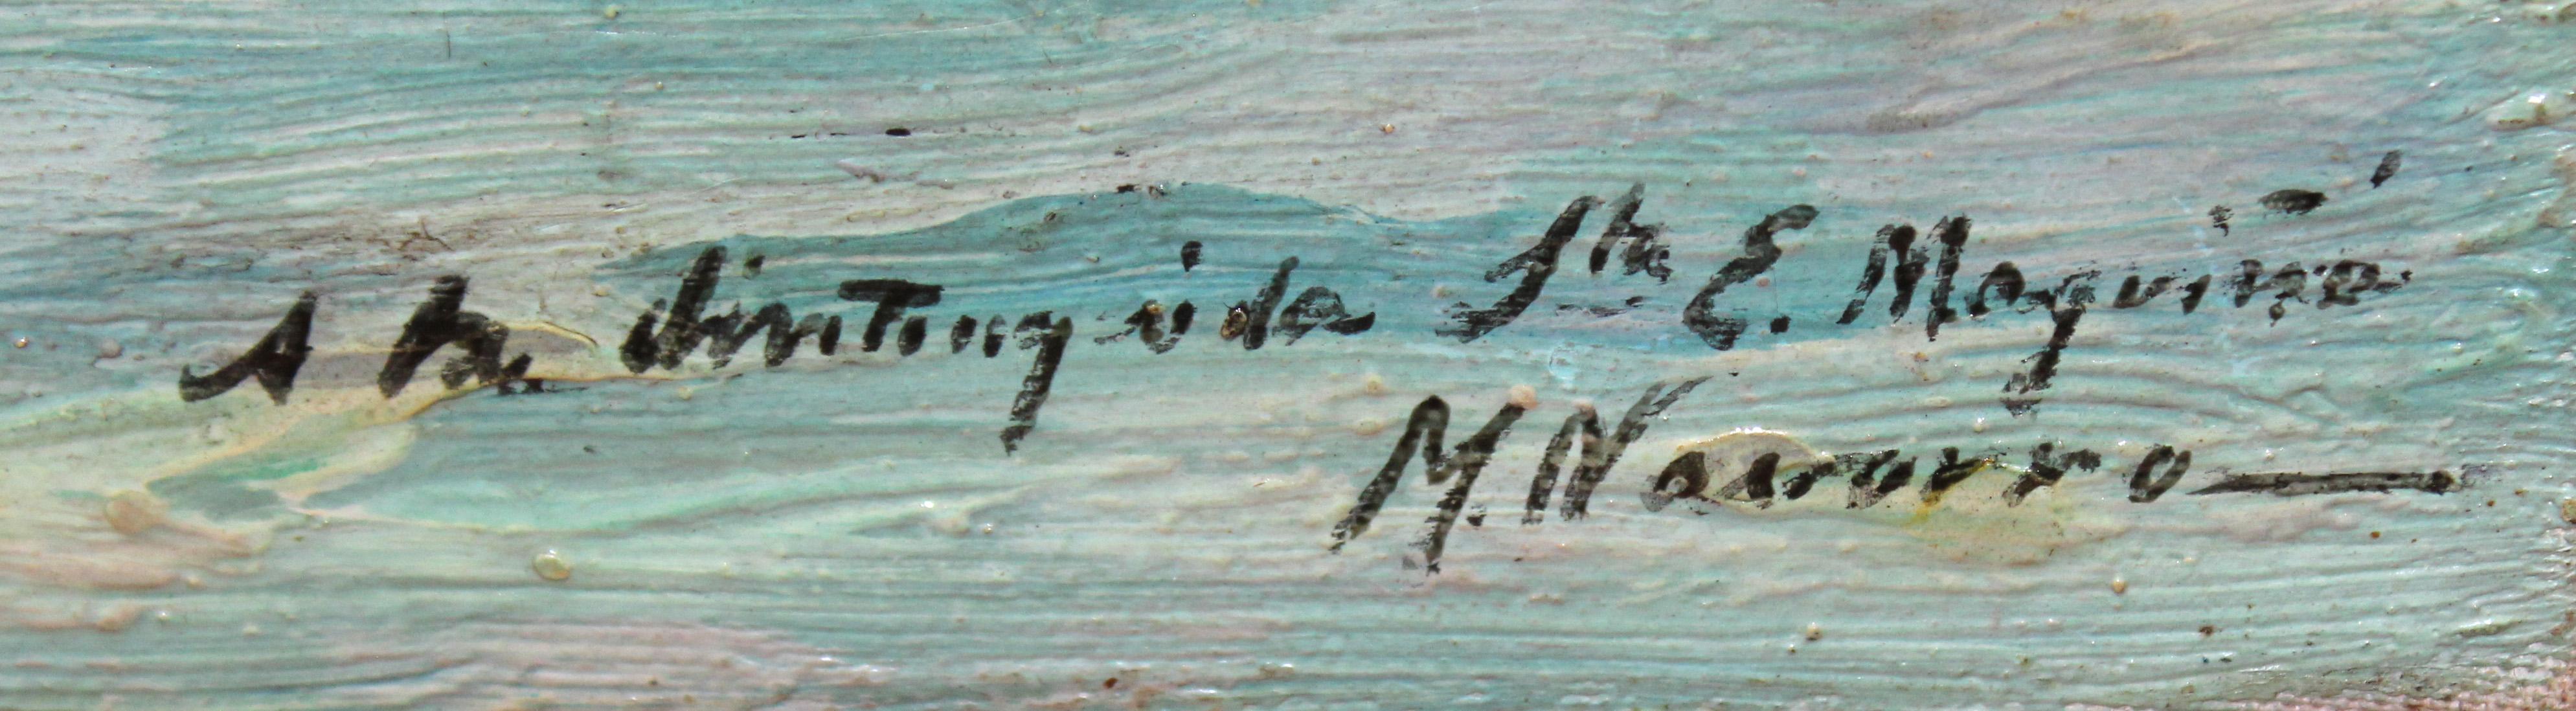 A la distinguida Sta E. Maguiña
M. Navarro